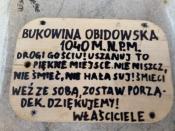 BUKOWINA OBIDOWSKA
1040 M.N.P.M.
DROGI GOŚCIU! USZANUJ TO
PIĘKNE MIEJSCE. NIE NISZCZ,
NIE ŚMIEĆ, NIE HAŁASUJ! ŚMIECI
WEŹ ZE SOBĄ, ZOSTAW PORZĄ-
DEK. DZIĘKUJEMY!
WŁAŚCICIELE